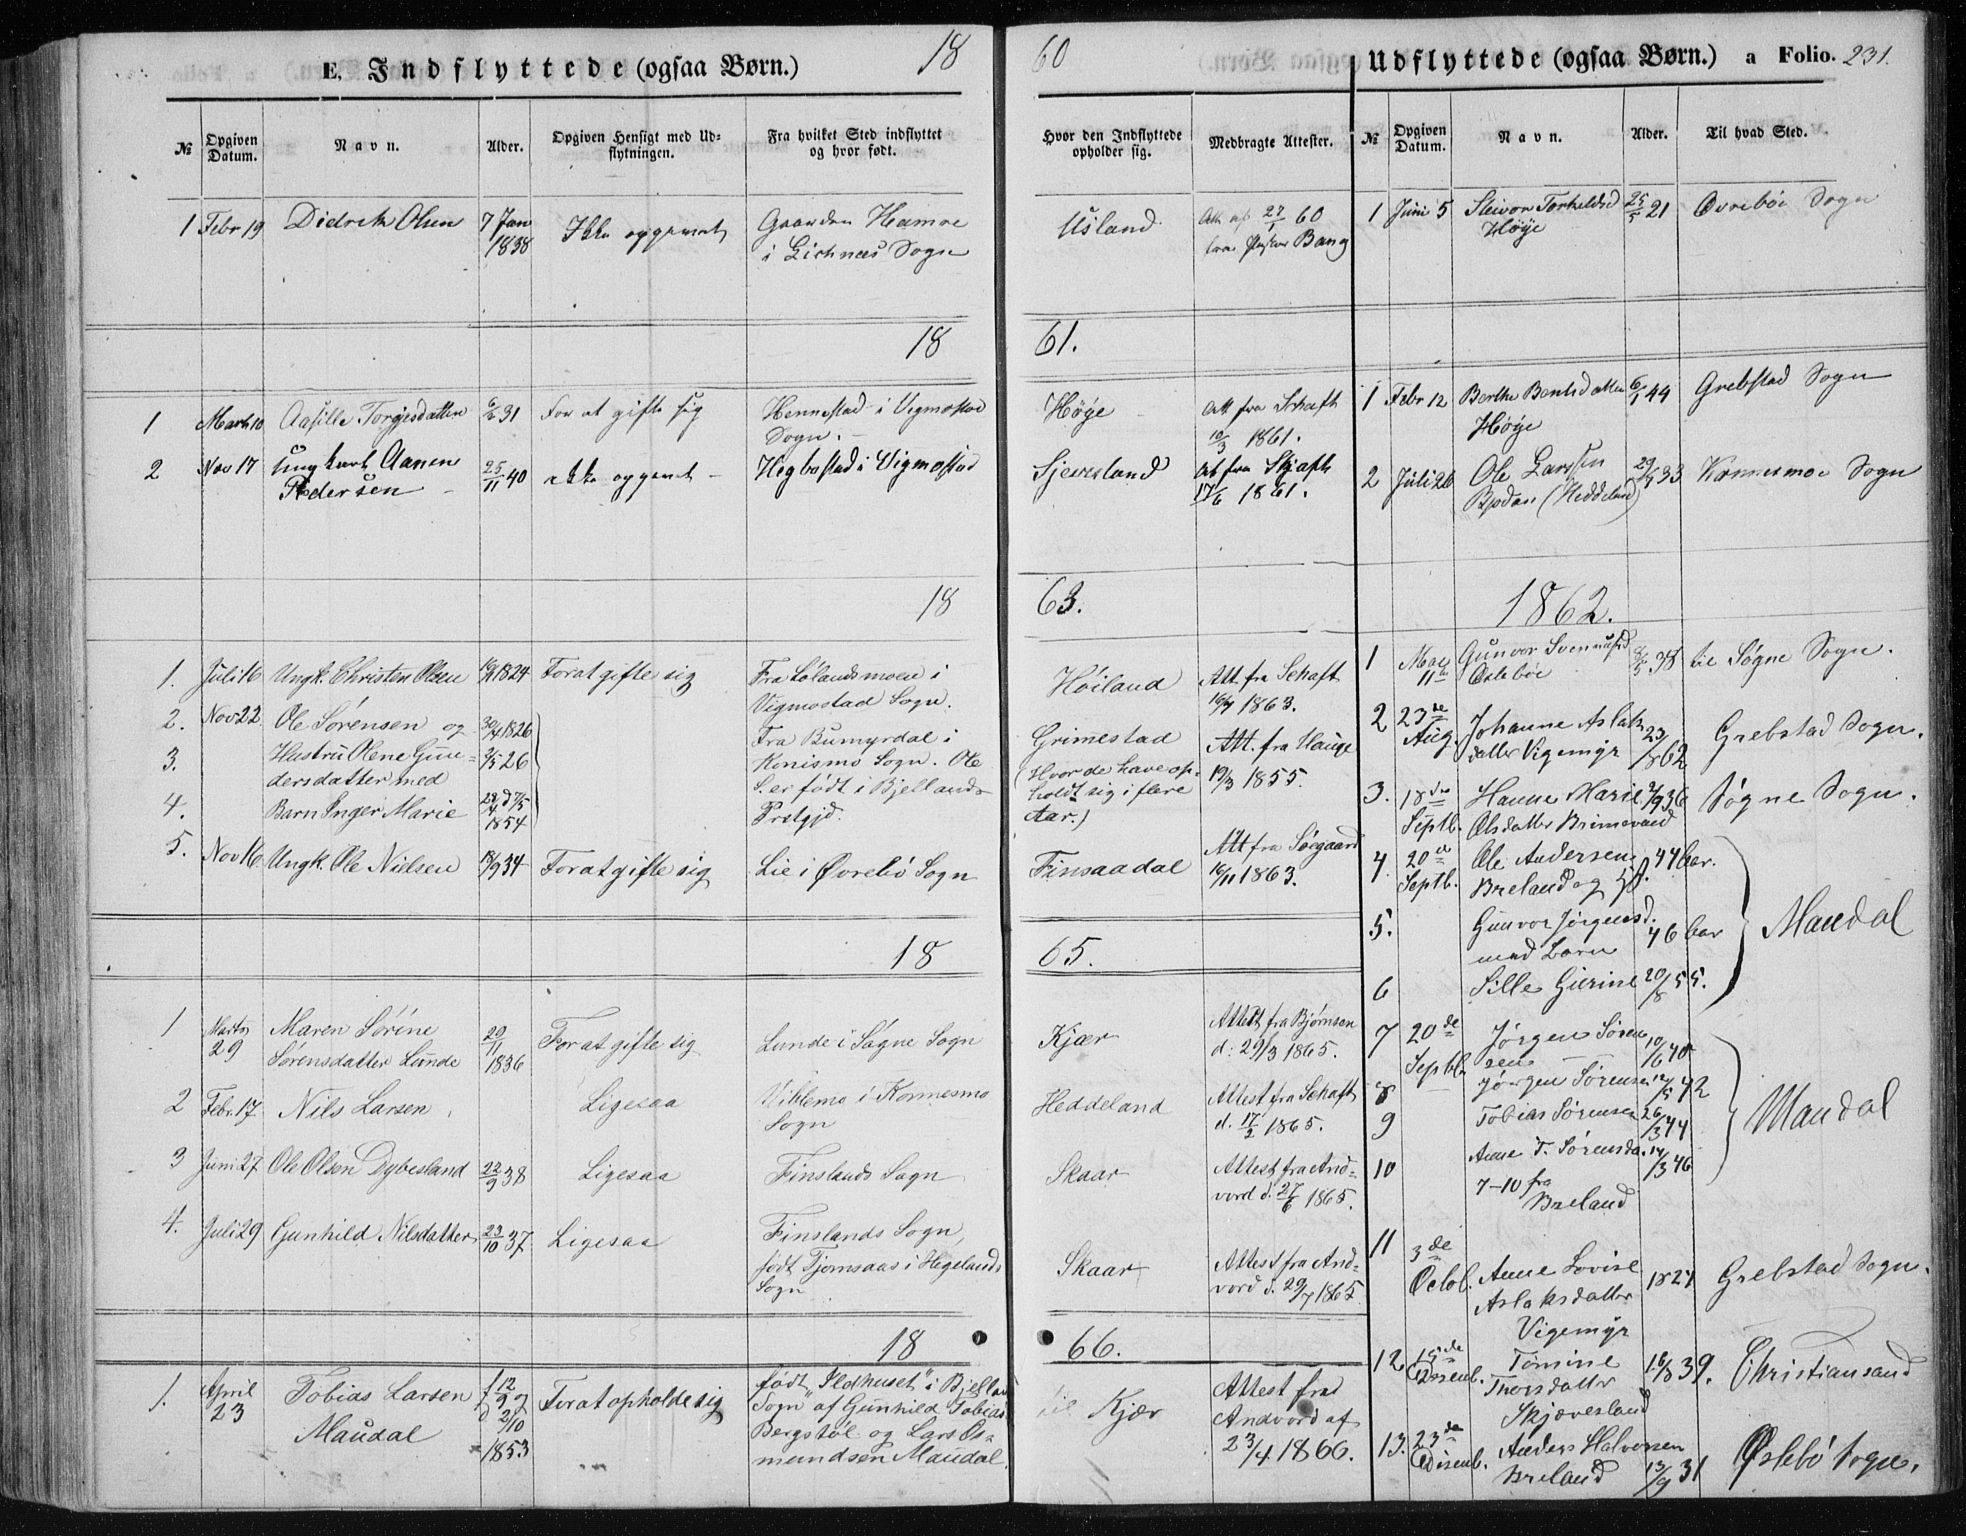 E. Indflyttede (ogsaa Børn.)
18
№
Opgiven Datum.
Navn.
Alder.
Opgiven Hensigt med Ud-
flytningen.
Fra hvilket Sted indflyttet
og hvor født.
1 Febr 19 Didrik Olsen 7 Jan 1838 Ikke opgivet Gaarden Hamre
i Sogn
18
1 Marts 10 Aasille Torgjesdatter 31 For at gifte sig Hennestad i Vigmostad
Sogn.
2 Nov 17 Ungkarl Aanen 25/11 40 ikke opgivet – Hegbostad i Vigmostad
Pedersen –
18
1. Juli 16 Ungk. Christen Olsen 1824 For at gifte sig Fra Lølandsmoen i
Vigmostad Sogn.
2. Nov 22 Ole Sørensen og 30/4 1826 Fra Bumyrdal i
3. Hustru Olene Gun- 26 Konismo Sogn. Ole
dersdatter med S. er født i Bjellands
4. Barn Inger Marie 1854 Prstgjd.
5. Nov 16 Ungk. Ole Nielsen 18/9 34 For at gifte sig Lie i Øvrebø Sogn
18
1 Marts 29 Maren Sørine 29/11 1836 For at gifte sig Lunde i Søgne Sogn
Sørensdatter Lunde
2 Febr. 17 Nils Larsen Ligesaa i Konnesmo
Sogn
3 Juni 27 Ole Olsen Dybesland 22/9 38 Ligesaa Finslands Sogn
4. Juli 29 Gunhild Nilsdatter 23/10 37 Ligesaa Finslands Sogn,
født Tjomsaas i Hegelands
Sogn
18
1. April 23 Tobias Larsen f 12/9 d 2/10 1853 For at opholde sig født "Ildhuset" i Bjelland
Maudal Sogn af Gunhild Tobias
Bergstøl og Lars Os-
mundsen Maudal.
60
Udflyttede (ogsaa Børn.) a Folio. 231.
Hvor den Indflyttede
opholder sig.
Medbragte Attester.
№
Opgiven Datum.
Navn.
Alder.
Til hvad Sted.
Usland Att af 27/1 60
fra Bang
61.
Høye Att fra Schaft
10/3 1861.
Att fra Skjaft
17/6 1861.
63.
Høiland Att. fra Schaft
16/7 1863.
Grimestad Att. fra Hauge
(Hvor de have op- 19/3 1855.
holdt sig i flere
Aar.)
Finsaadal Att fra Søegaard
16/11 1863.
65.
Kjær Attest fra Bjørnsen
d: 29/3 1865.
Heddeland Attest fra Schaft
d. 17/2 1865.
Skaar Attest fra And-
vord d. 27/6 1865.
Skaar Attest fra And-
vord d. 29/7 1865
66.
Kjær Attest fra
Andvord af
23/4 1866.
1 Juni 5 Torkelsd 25/5 21 Øvrebø Sogn
Høye
1 Febr 12 Berthe Bentsdatter 6/1 44 Grebstad Sogn
Høye
2 Juli 26 Ole Larssen 29/ 33 Konnesmoe Sogn
(Heddeland)
1862.
1 Mai 11te Gunvor 38 til Søgne Sogn.
Øslebøe
2 23de Aug. Johanne Aslak- 23/8 62 Grebstad Sogn.
datter Vigemyr
3. 18de Septb. Hanne Marie 2/9 36 Søgne Sogn.
Olsdatter Brimevand
4. 20de Septb. Ole Andersen 44 aar.
Breland og
5. Gunvor Jørgensd. 46 aar Mandal
med Barn
6 Sille Gurine 20/8 55.
7 20de Septb. Jørgen Søren- 10/6 40
sen
8 Jørgen Sørensen 12/5 42 Mandal
9 Tobias Sørensen 26/3 44
10 Anne T. Sørensda. 14/3 46
7–10 fra
Breland
11 3de Octob. Anne Lovise 1827 Grebstad Sogn.
Aslaksdatter
Vigemyr
12 15de Desemb. Tomine 16/8 39. Christiansand
Thorsdatter
Skjævesland
13. 23de Desemb. Anders Halvorsen 13/9 31 Øslebø Sogn.
Breland